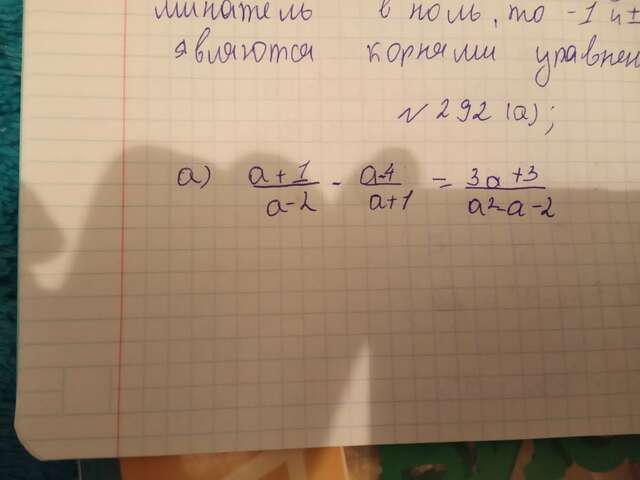 минатель в ноль, то -1 и ±
являются корнями уравнен
№292(а);
а) (a+1)/(a-2) - (a-4)/(a+1) = (3a+3)/(a²-a-2)